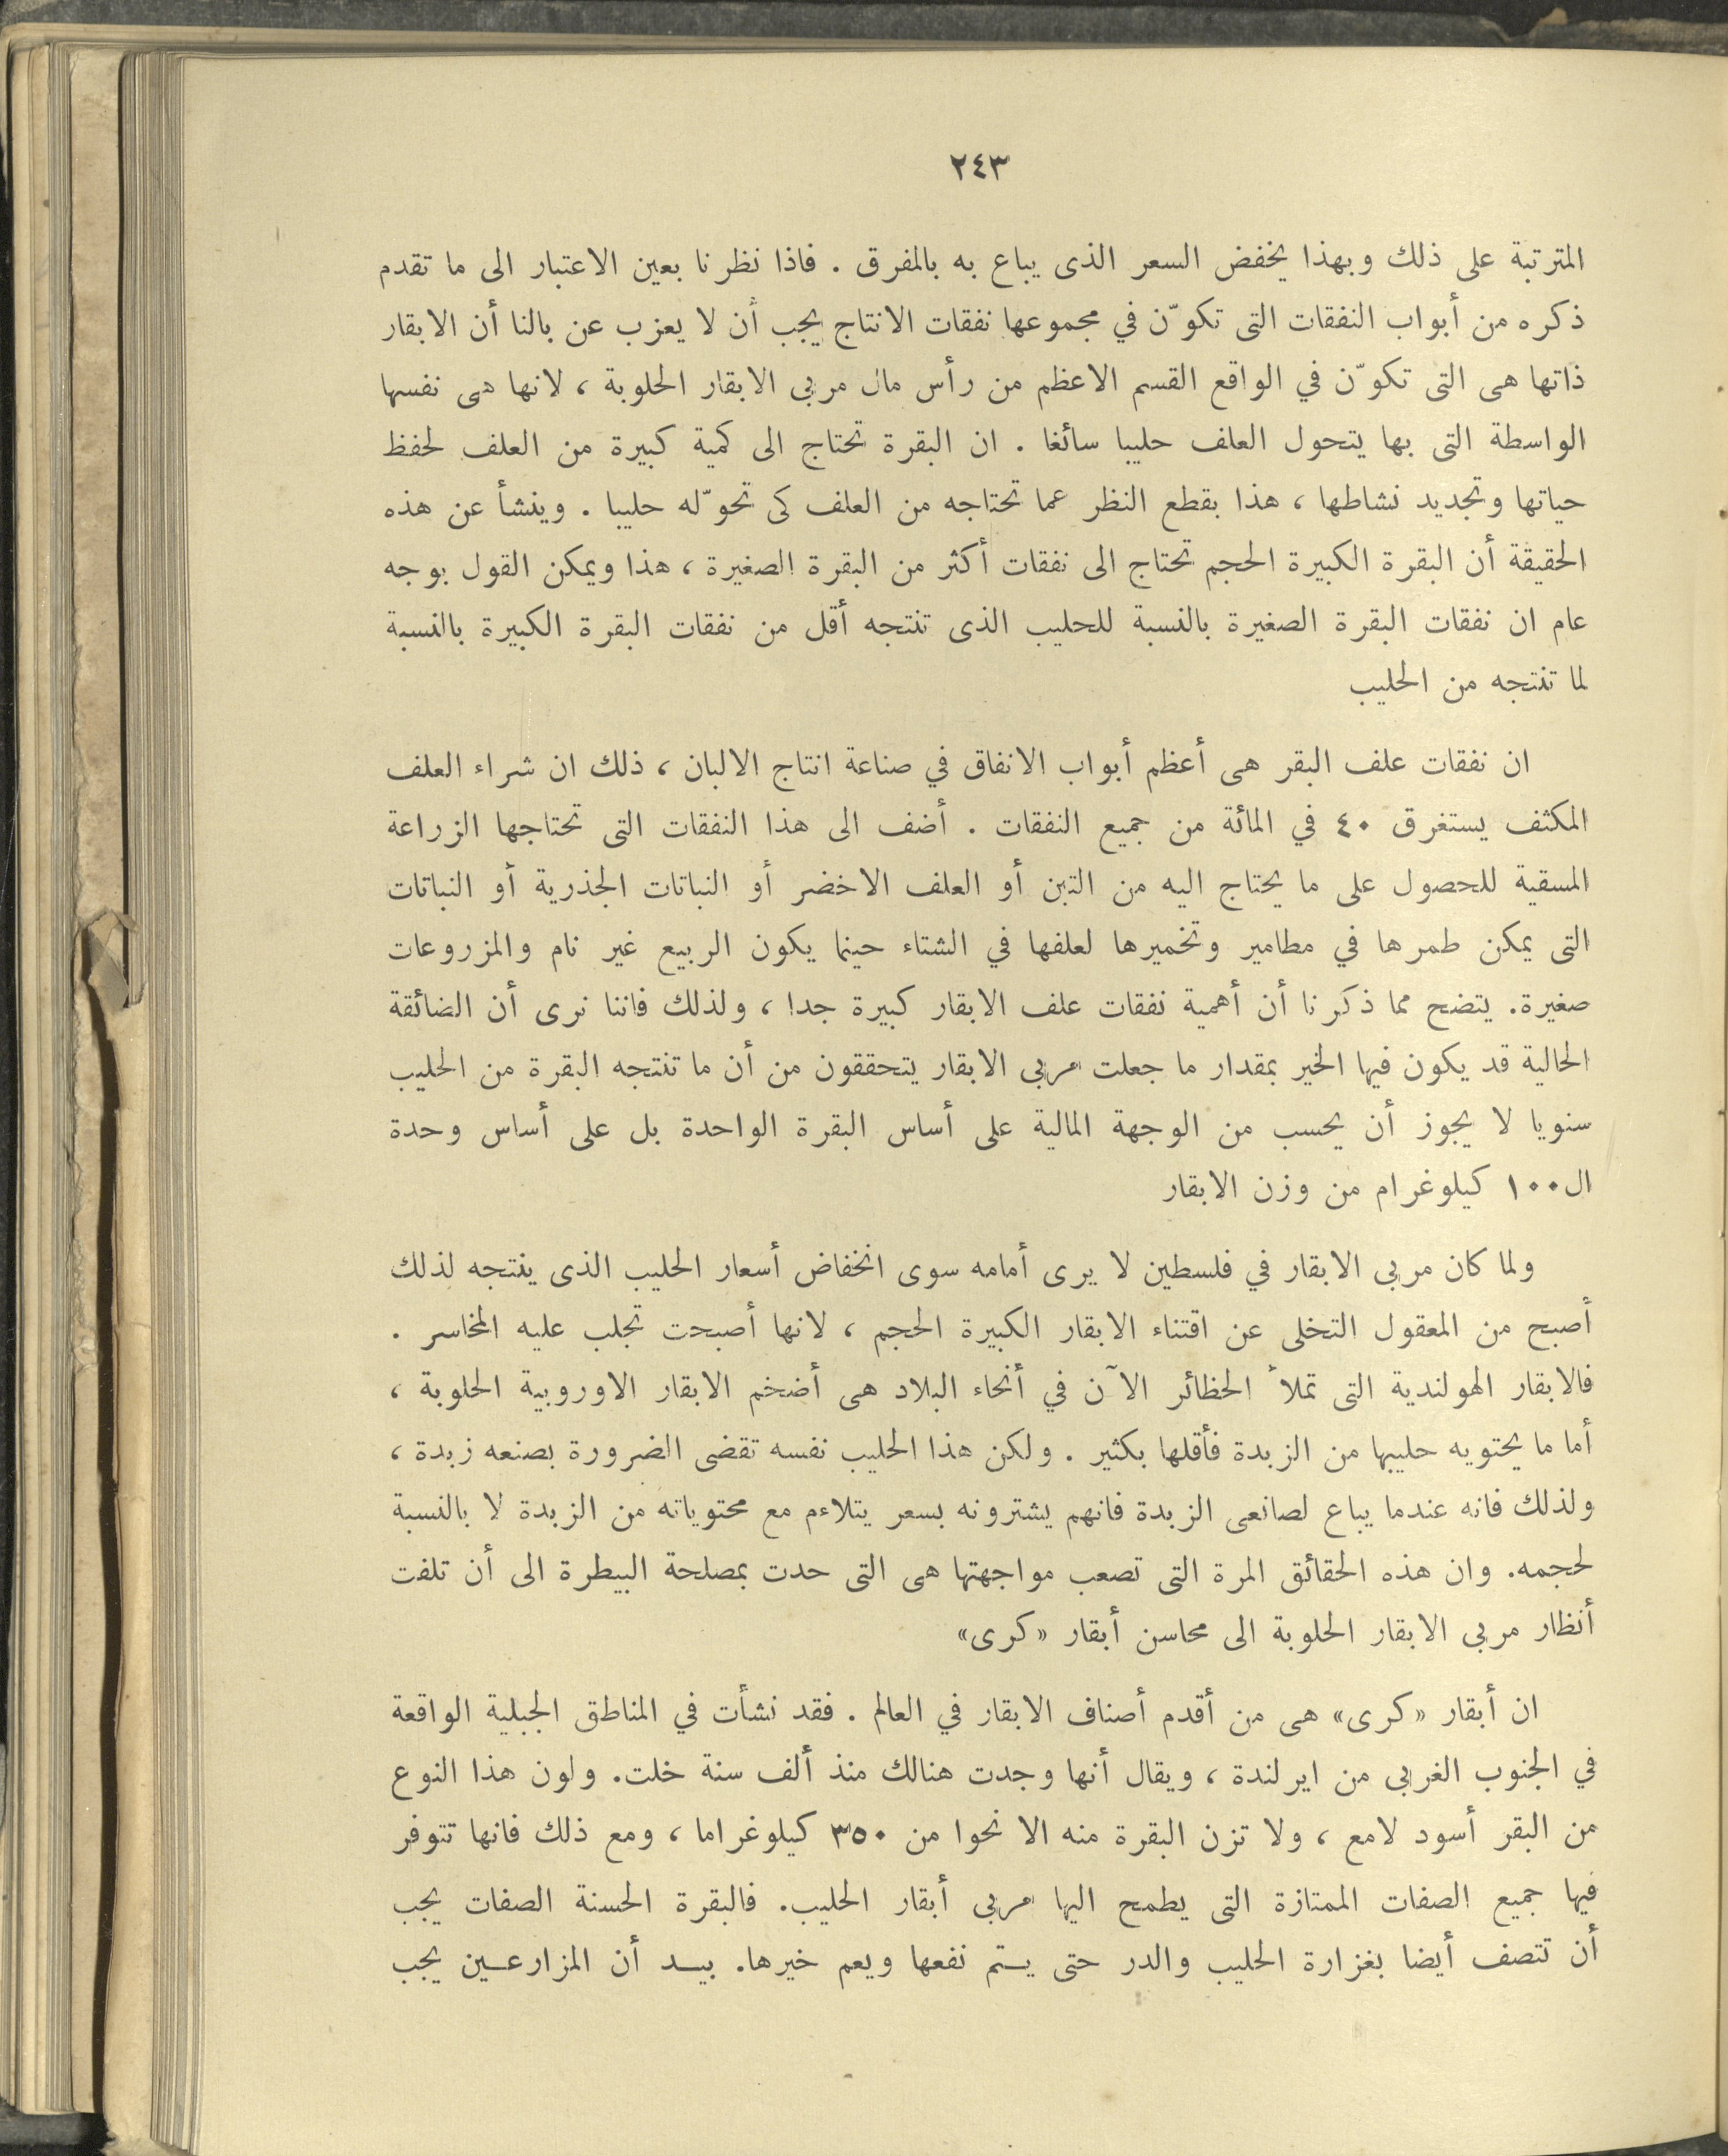 ٢٤٣
المترتبة على ذلك وبهذا يخفض السعر الذى يباع به بالمفرق . فاذا نظرنا بعين الاعتبار الى ما تقدم
ذكره من أبواب النفقات التى تكوّن في مجموعها نفقات الانتاج يجب أن لا يعزب عن بالنا أن الابقار
ذاتها هى التى تكوّن في الواقع القسم الاعظم من رأس مال مربى الابقار الحلوبة ، لانها هى نفسها
الواسطة التى بها يتحول العلف حليبا سائغا . ان البقرة تحتاج الى كمية كبيرة من العلف لحفظ
حياتها وتجديد نشاطها ، هذا بقطع النظر عما تحتاجه من العلف كى تحوّله حليبا . وينشأ عن هذه
الحقيقة أن البقرة الكبيرة الحجم تحتاج الى نفقات أكثر من البقرة الصغيرة ، هذا ويمكن القول بوجه
عام ان نفقات البقرة الصغيرة بالنسبة للحليب الذى تنتجه أقل من نفقات البقرة الكبيرة بالنسبة
لما تنتجه من الحليب
ان نفقات علف البقر هى أعظم أبواب الانفاق في صناعة انتاج الالبان ، ذلك ان شراء العلف
المكثف يستغرق ٤٠ في المائة من جميع النفقات . أضف الى هذا النفقات التى تحتاجها الزراعة
المسقية للحصول على ما يحتاج اليه من التبن أو العلف الاخضر أو النباتات الجذرية أو النباتات
التى يمكن طمرها في مطامير وتخميرها لعلفها في الشتاء حينما يكون الربيع غير نام والمزروعات
صغيرة. يتضح مما ذكرنا أن أهمية نفقات علف الابقار كبيرة جدا ، ولذلك فاننا نرى أن الضائقة
الحالية قد يكون فيها الخير بمقدار ما جعلت مربى الابقار يتحققون من أن ما تنتجه البقرة من الحليب
سنويا لا يجوز أن يحسب من الوجهة المالية على أساس البقرة الواحدة بل على أساس وحدة
ال١٠٠ كيلوغرام من وزن الابقار
ولما كان مربى الابقار في فلسطين لا يرى أمامه سوى انخفاض أسعار الحليب الذى ينتجه لذلك
أصبح من المعقول التخلى عن اقتناء الابقار الكبيرة الحجم ، لانها أصبحت تجلب عليه المخاسر .
فالابقار الهولندية التى تملأ الحظائر الآن في أنحاء البلاد هى أضخم الابقار الاوروبية الحلوبة ،
أما ما يحتويه حليبها من الزبدة فأقلها بكثير . ولكن هذا الحليب نفسه تقضى الضرورة بصنعه زبدة ،
ولذلك فانه عندما يباع لصانعى الزبدة فانهم يشترونه بسعر يتلاءم مع محتوياته من الزبدة لا بالنسبة
لحجمه. وان هذه الحقائق المرة التى تصعب مواجهتها هى التى حدت بمصلحة البيطرة الى أن تلفت
أنظار مربى الابقار الحلوبة الى محاسن أبقار «كرى»
ان أبقار «كرى» هى من أقدم أصناف الابقار في العالم . فقد نشأت في المناطق الجبلية الواقعة
في الجنوب الغربى من ايرلندة ، ويقال أنها وجدت هنالك منذ ألف سنة خلت. ولون هذا النوع
من البقر أسود لامع ، ولا تزن البقرة منه الا نحوا من ٣٥٠ كيلوغراما ، ومع ذلك فانها تتوفر
فيها جميع الصفات الممتازة التى يطمح اليها مربى أبقار الحليب. فالبقرة الحسنة الصفات يجب
أن تتصف أيضا بغزارة الحليب والدر حتى يتم نفعها ويعم خيرها. بيد أن المزارعين يجب